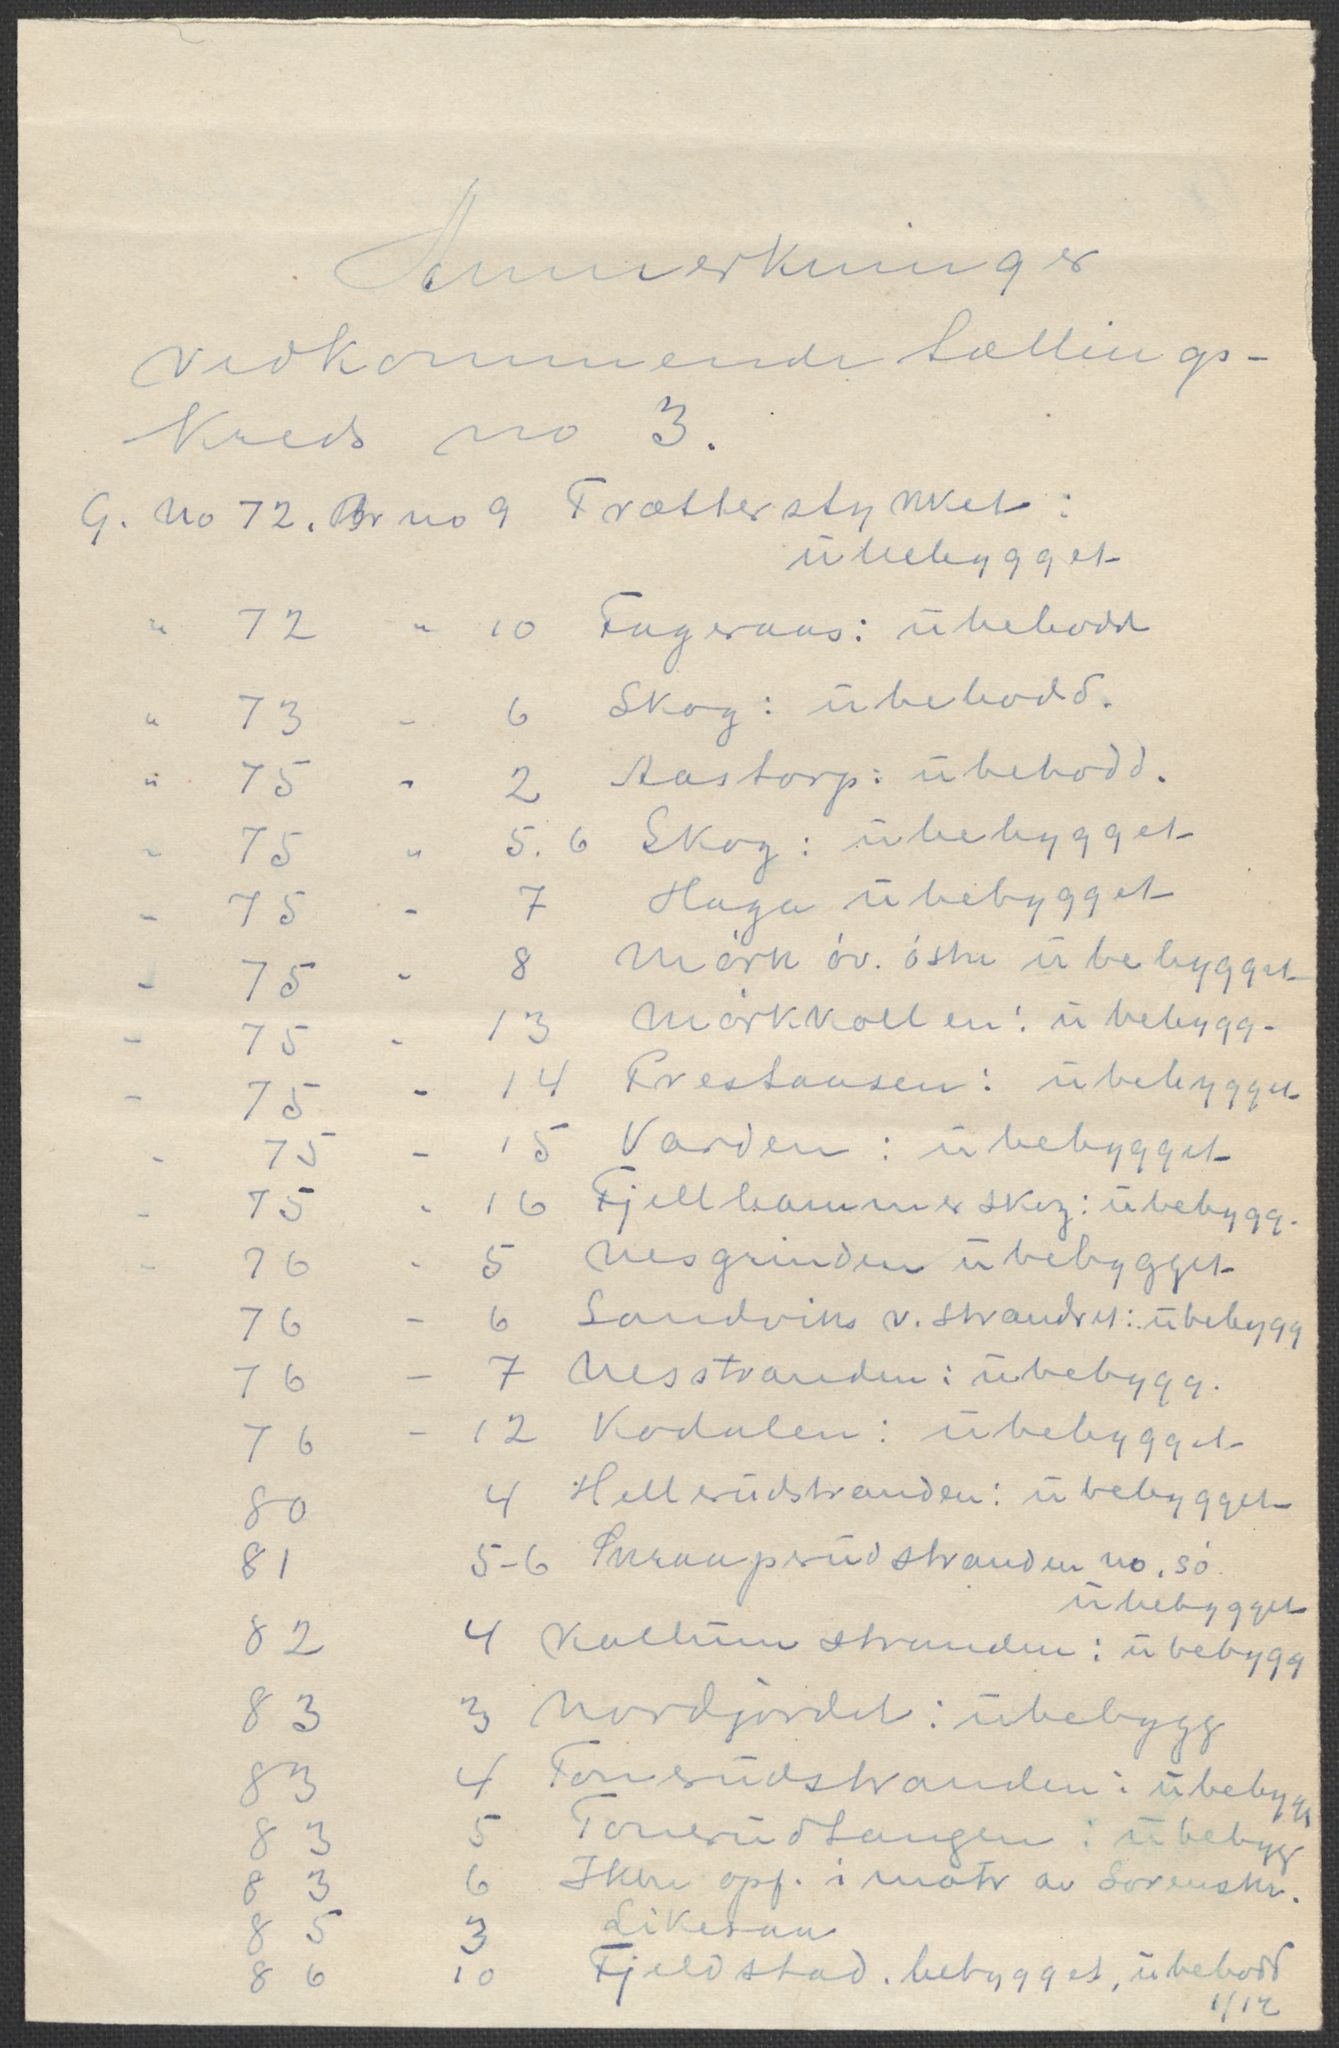 Anmerkninger
vedkommende tællings-
kreds no 3.
G. No 72. Br no 9 Frætterstykket :
ubebygget
" 72 " 10 Fageraas: ubebodd
" 73 - 6 Skog: ubebodd.
" 75 - 2 Aastorp: ubebodd.
" 75 " 5. 6 Skog: ubebygget
- 75 - 7 Haga ubebygget
- 75 - 8 Mörk öv. östre ubebygget
- 75 - 13 Mörkkollen: ubebygg-
- 75 - 14 Prestaasen: ubebygget
- 75 - 15 Varden: ubebygget
- 75 - 16 Fjellhammerskog: ubebygg.
- 76 - 5 Nesgrinden ubebygget
76 - 6 Sandviks v. strandret: ubebygg
76 - 7 Nesstranden: ubebygg.
76 - 12 Kodalen: ubebygget
80 4 Hellerudstranden: ubebygget
81 5-6 Skraaperudstranden no. sö
ubebygget
82 4 Kallum stranden: ubebygg
83 3 Nordjordet: ubebygg
83 4 Tonerudstranden: ubebygg
83 5 Tonerudtangen: ubebygg
83 6 Ikke opf. i matr av Sorenskr.
85 3 Likesaa
86 10 Fjeldstad. bebygget, ubebodd
1/12